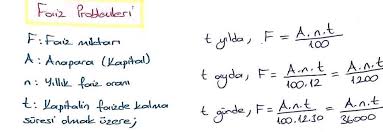 Faiz Problemleri
F: Faiz miktarı
A: Anapara (Kapital)
n: Yıllık faiz oranı
t: Kapitalin faizde kalma
süresi olmak üzere;
t yılda, F = A.n.t / 100
t ayda, F = A.n.t / 100.12 = A.n.t / 1200
t günde, F = A.n.t / 100.12.30 = A.n.t / 36000